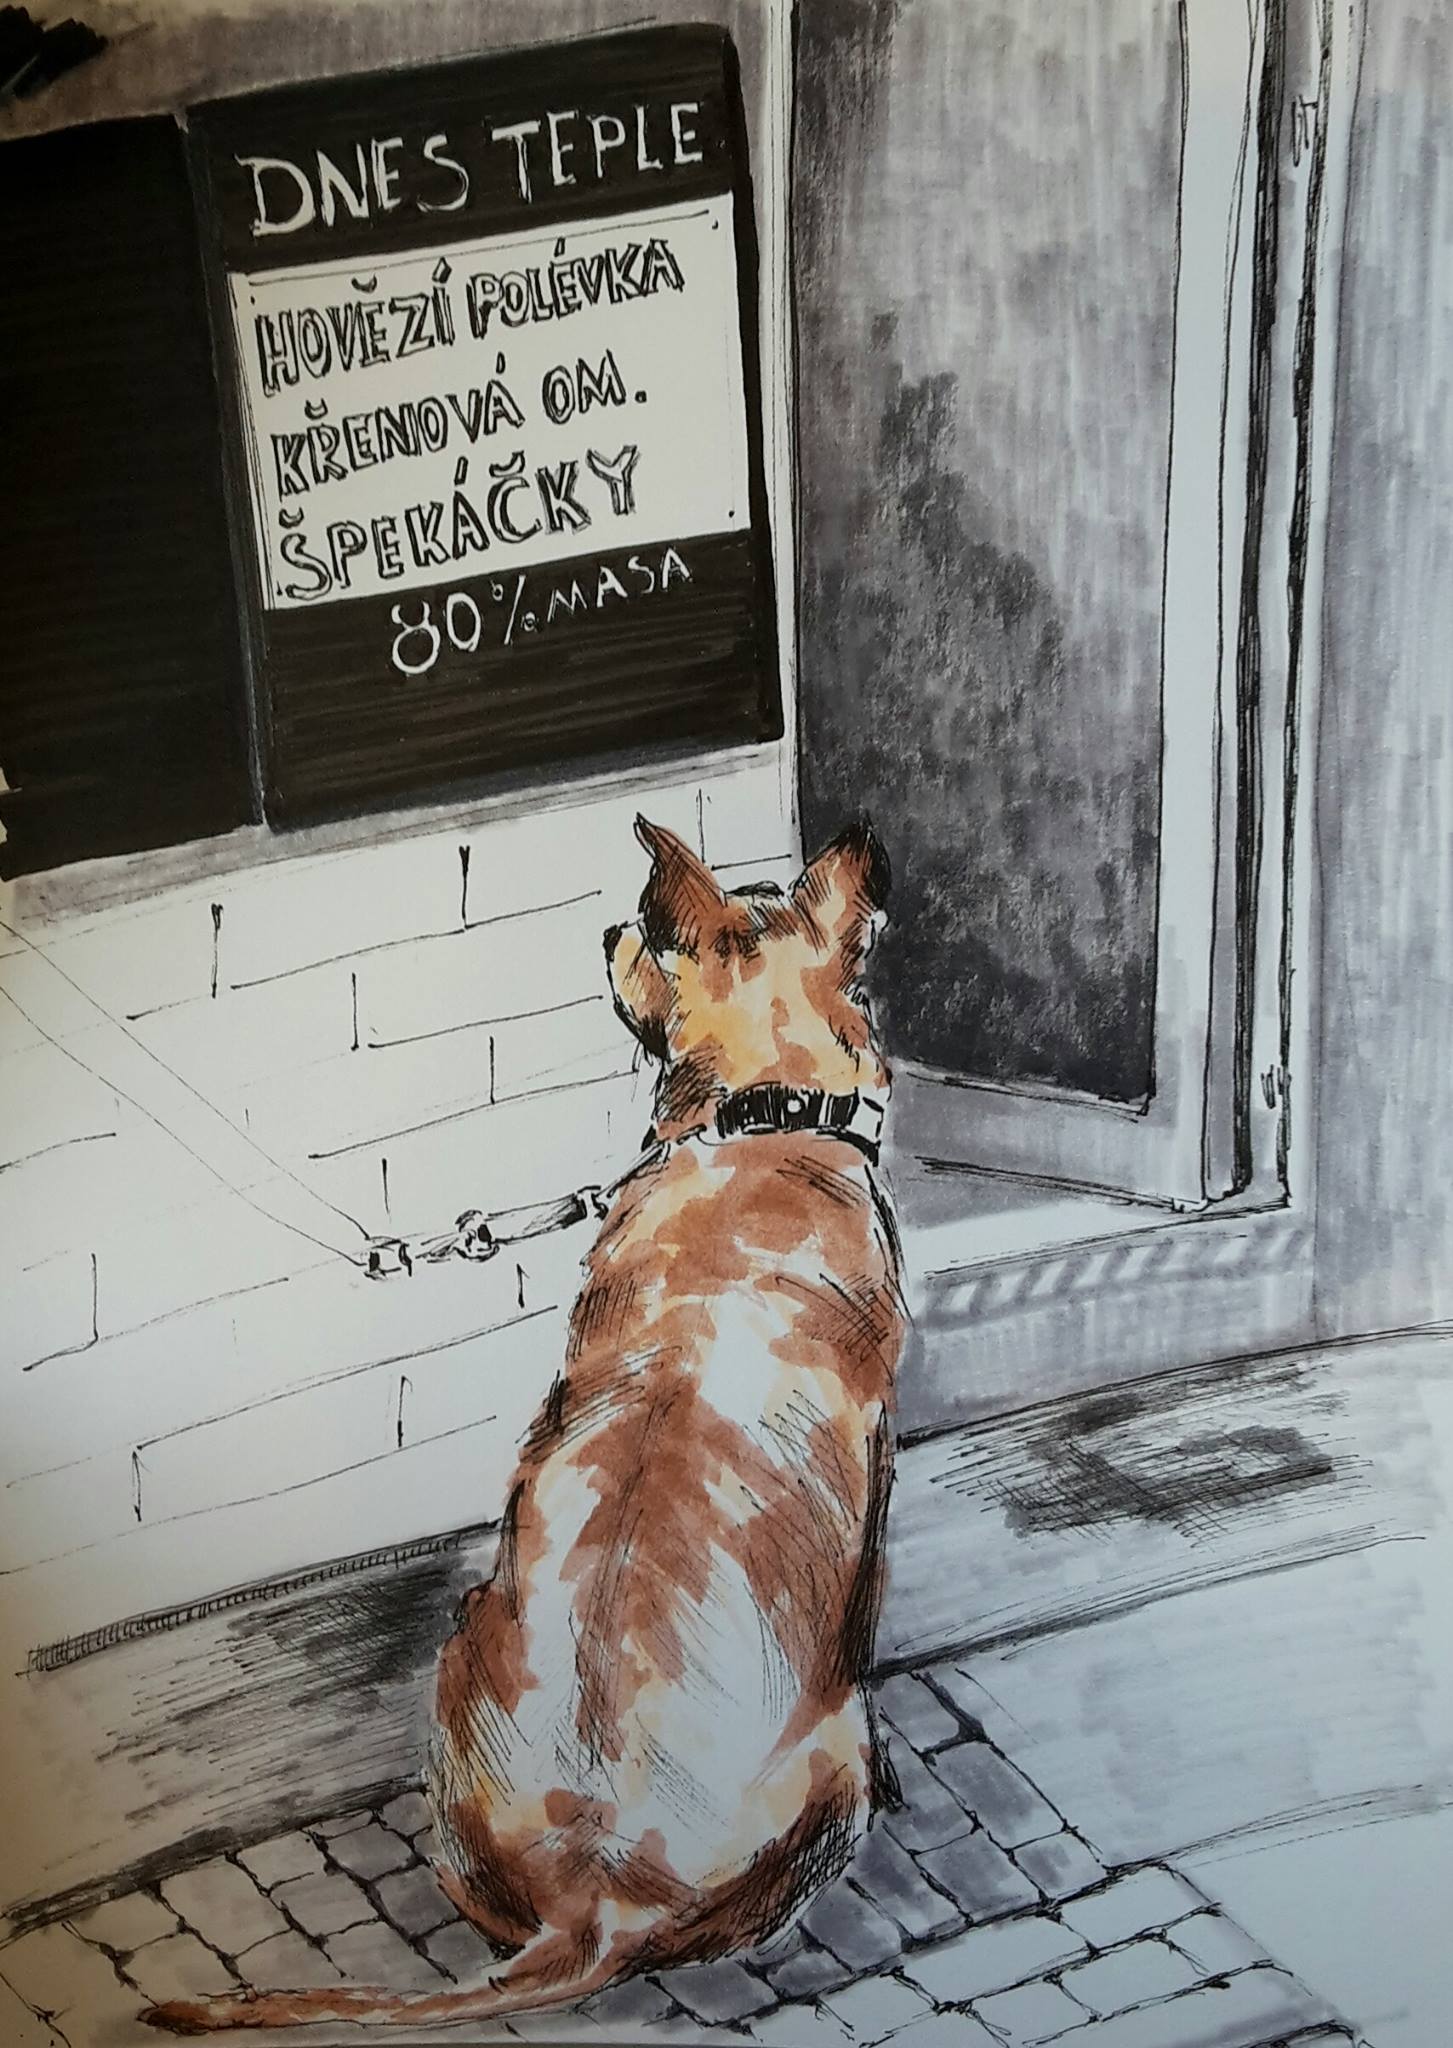 DNES TEPLE
HOVĚZÍ POLÉVKA
KŘENOVÁ OM.
ŠPEKÁČKY
80% MASA